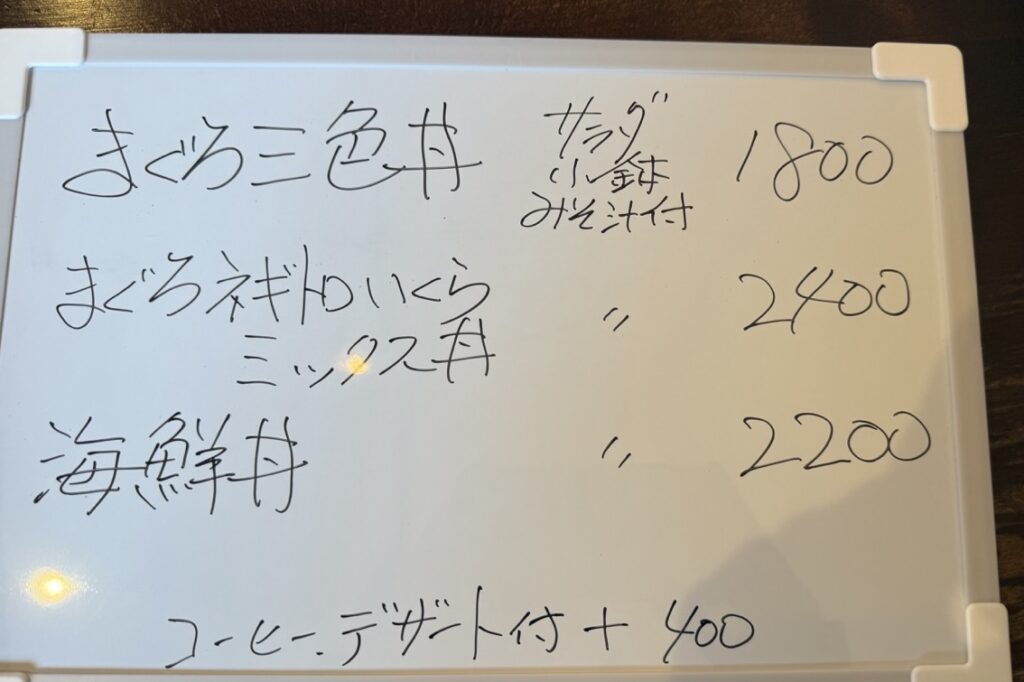 まぐろ三色丼 サラダ 1800
小鉢
みそ汁付
まぐろネギトロいくら 〃 2400
ミックス丼
海鮮丼 〃 2200
コーヒー、デザート付 + 400